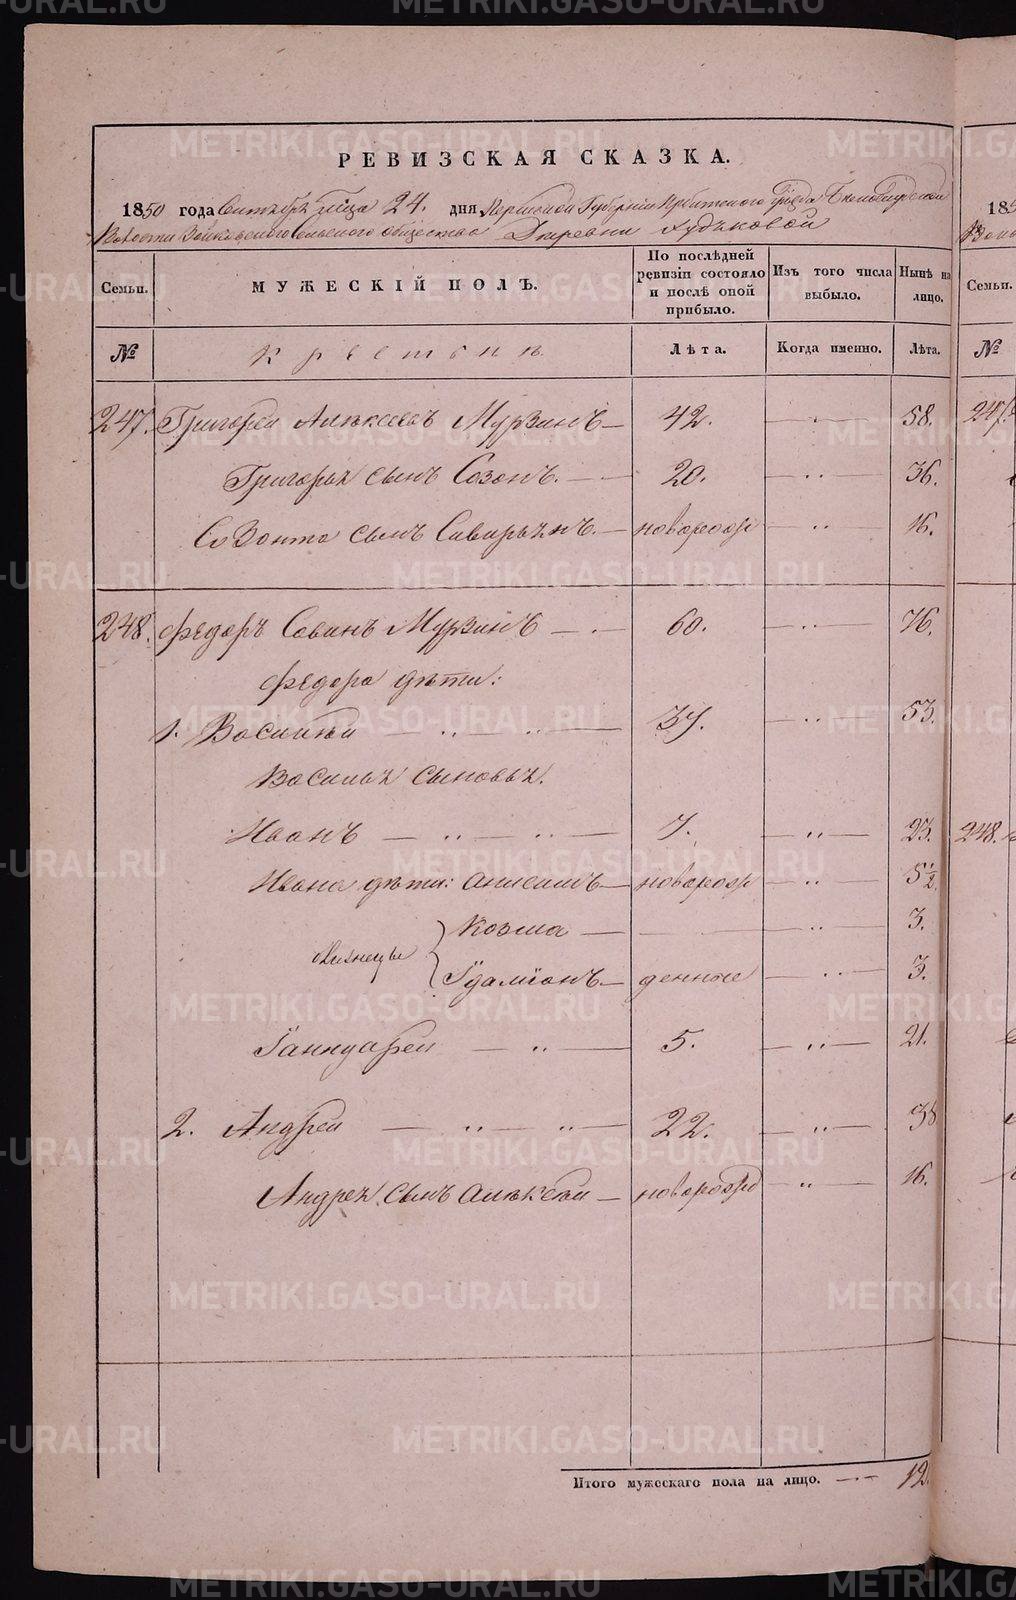 METRIKI.GASO-URAL.RU
РЕВИЗСКАЯ СКАЗКА.
1850 года Сентября м̃ца 24. дня Пермской Губернiи Ирбитского Уѣзда Белослудской
Волости Зайковского сельского общества Деревни Дудьковой
Семьи.
МУЖЕСКІЙ ПОЛЪ.
По послѣдней ревизіи состояло и послѣ оной прибыло.
Изъ того числа выбыло.
Нынѣ на лицо.
№ Крестьянъ Лѣта. Когда именно. Лѣта.
247. Григорей Алексѣевъ Мурзинъ — 42. — ,, — 58.
Григорья сынъ Созонъ. — 20. — ,, — 36.
Созонта сынъ Северьянъ. — новорожд — ,, — 16.
248. Федоръ Савинъ Мурзинъ — 60. — ,, — 76.
Федора дѣти:
1. Василѣй — ,, — 37. — ,, — 53.
Василья сыновья.
Иванъ — ,, — ,, — 7. — ,, — 23.
Ивана дѣти: Анисимъ — новорожд — ,, — 5½
Козма — — ,, — 3.
близнецы
Iудамiонъ — денные — ,, — 3.
Iаннуарей — ,, — 5. — ,, — 21.
2. Андрей — ,, — ,, — 22. — ,, — 38
Андрея сынъ Алексѣй — новорожд — ,, — 16.
Итого мужескаго пола на лицо. — 12.
185
Семьи.
№
247.
248.